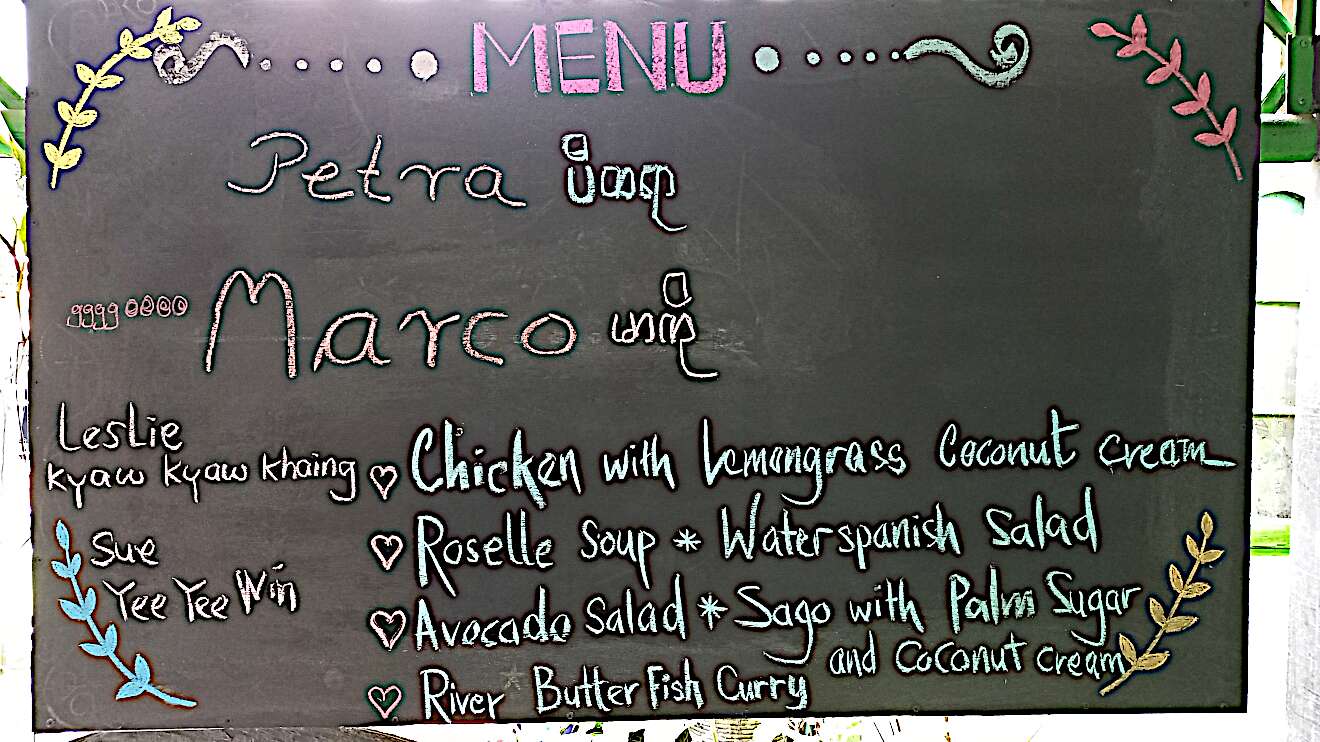 MENU
Petra ပီထရာ
Marco မာကို
Leslie
Kyaw Kyaw Khaing
Sue
Yee Yee Win
Chicken with Lemongrass Coconut Cream
Roselle Soup * Waterspanish Salad
Avocado Salad * Sago with Palm Sugar
and Coconut Cream
River Butter Fish Curry